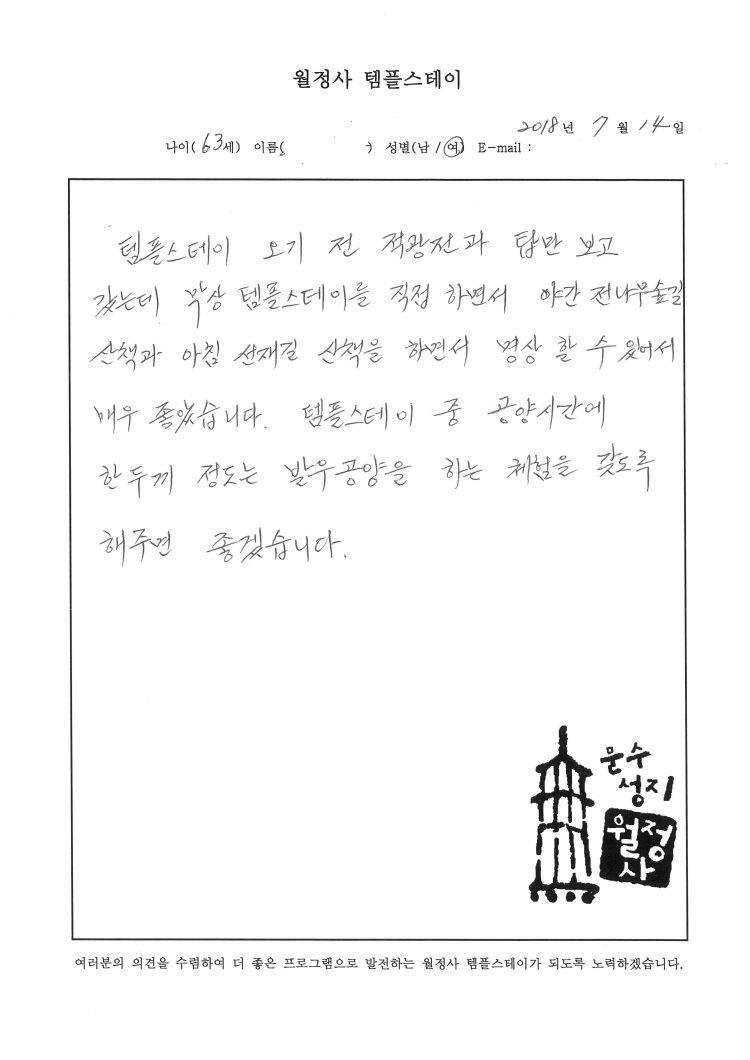 월정사 템플스테이
2018년 7월 14일
나이(63세) 이름( ) 성별(남 / 여) E-mail :
템플스테이 오기 전 적광전과 탑만 보고
갔는데 막상 템플스테이를 직접 하면서 야간 전나무숲길
산책과 아침 선재길 산책을 하면서 명상 할 수 있어서
매우 좋았습니다. 템플스테이 중 공양시간에
한두끼 정도는 발우공양을 하는 체험을 갖도록
해주면 좋겠습니다.
문수
성지
월정
사
여러분의 의견을 수렴하여 더 좋은 프로그램으로 발전하는 월정사 템플스테이가 되도록 노력하겠습니다.